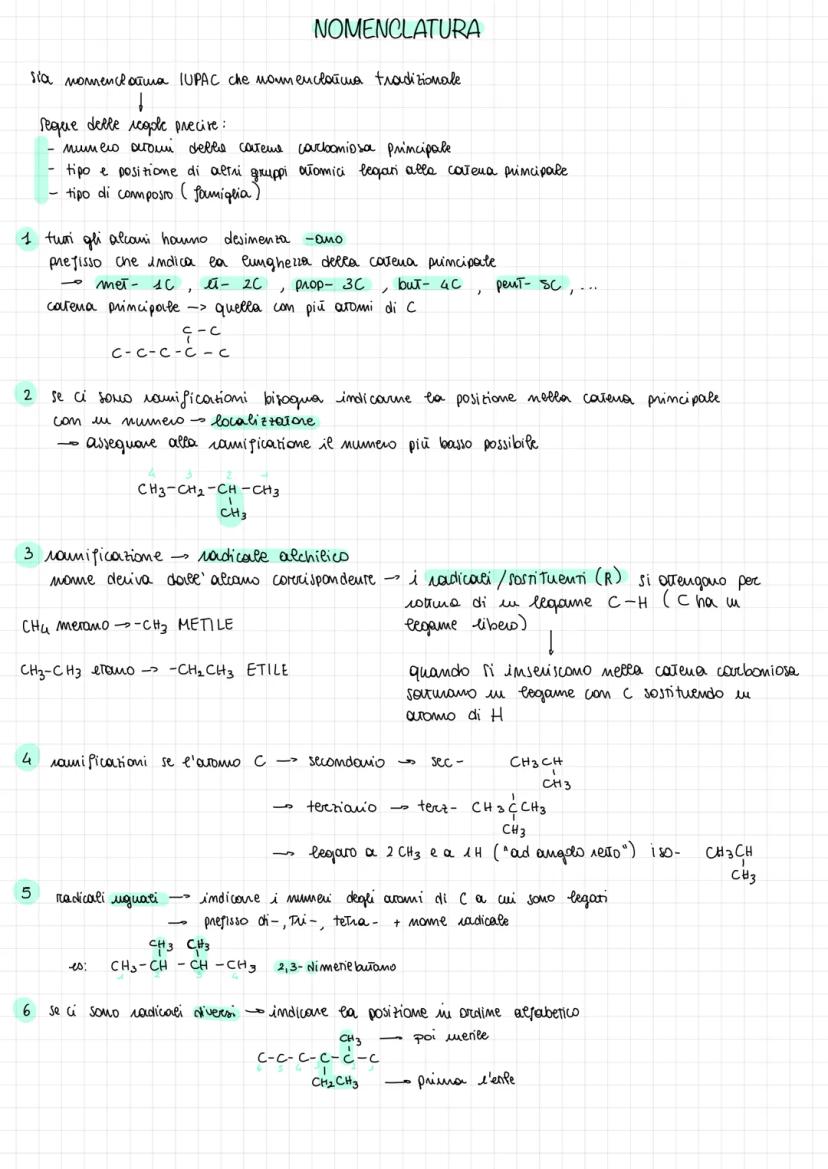 NOMENCLATURA
sia nomenclatura IUPAC che nomenclatura tradizionale
↓
segue delle regole precise:
- numero atomi della catena carboniosa principale
- tipo e posizione di altri gruppi atomici legati alla catena principale
- tipo di composto (famiglia)
1 tutti gli alcani hanno desinenza -ano
prefisso che indica la lunghezza della catena principale
→ met- 1C, et- 2C, prop- 3C, but- 4C, pent- 5C, ...
catena principale -> quella con più atomi di C
C - C
C - C - C - C - C
2 se ci sono ramificazioni bisogna indicarne la posizione nella catena principale
con un numero → localizzatore
→ assegnare alla ramificazione il numero più basso possibile
4 3 2 1
CH3-CH2-CH-CH3
CH3
3 ramificazione → radicale alchilico
nome deriva dall'alcano corrispondente → i radicali/sostituenti (R) si ottengono per
rottura di un legame C-H (C ha un
legame libero)
CH4 metano → -CH3 METILE
↓
CH3-CH3 etano → -CH2CH3 ETILE
quando si inseriscono nella catena carboniosa
saturano un legame con C sostituendo un
atomo di H
4 ramificazioni se l'atomo C → secondario → sec- CH3CH
CH3
→ terziario → terz- CH3CCH3
CH3
→ legato a 2 CH3 e a 1H ("ad angolo retto") iso- CH3CH
CH3
5 radicali uguali → indicare i numeri degli atomi di C a cui sono legati
→ prefisso di-, tri-, tetra- + nome radicale
CH3 CH3
es: CH3-CH-CH-CH3 2,3-dimetilbutano
1 2 3 4
6 se ci sono radicali diversi → indicare la posizione in ordine alfabetico
CH3 → poi metile
C-C-C-C-C-C
6 5 4 3 2 1
CH2CH3 → prima l'etile